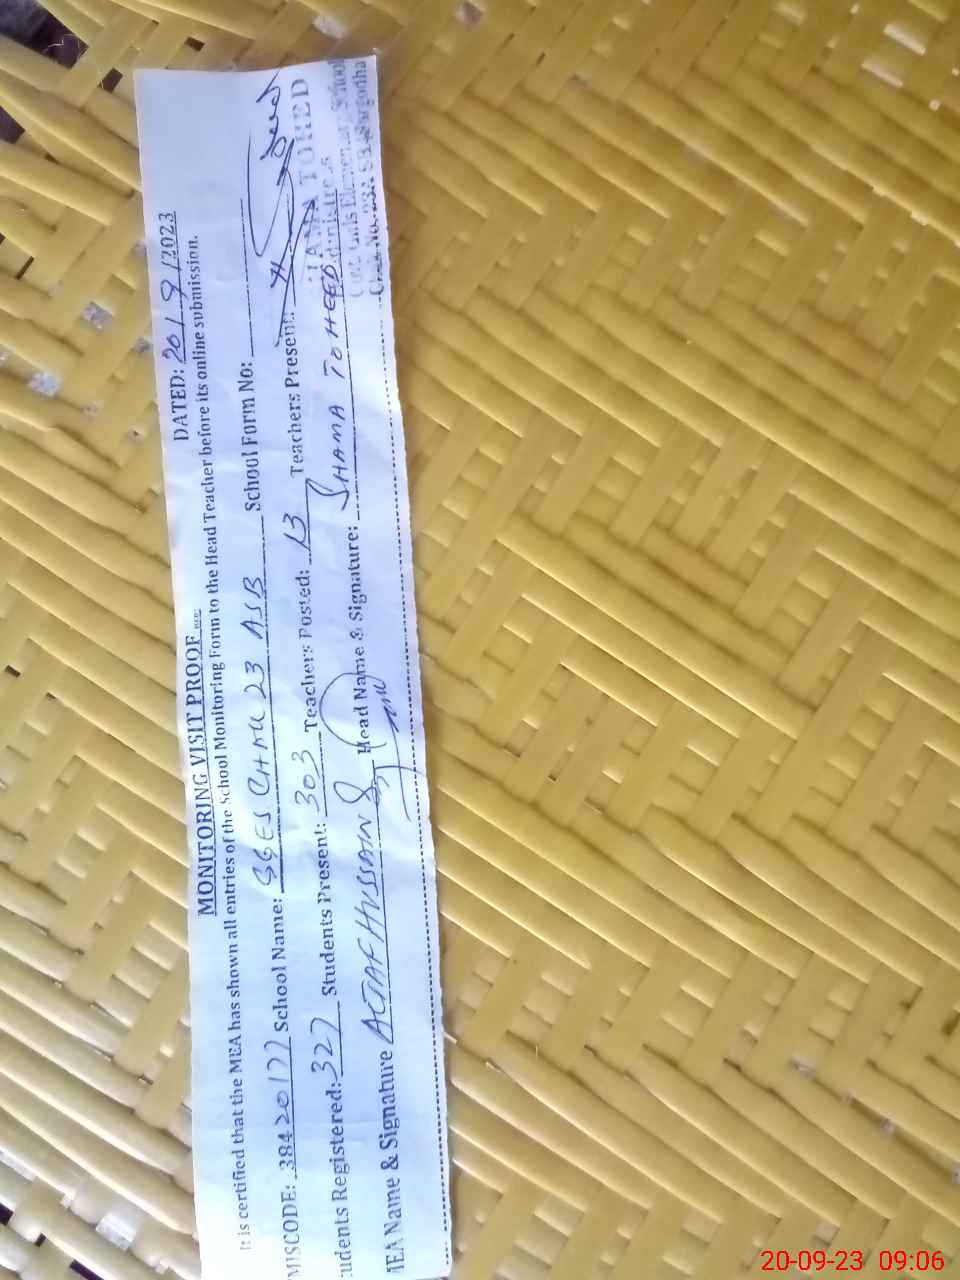 MONITORING VISIT PROOF DATED: 20/9/2023
It is certified that the MEA has shown all entries of the School Monitoring Form to the Head Teacher before its online submission.
MISCODE: 38420177 School Name: GGES CH NO 23 ASB School Form No:
tudents Registered: 327 Students Present: 303 Teachers Posted: 13 Teachers Present:
MEA Name & Signature ALTAF HUSSAIN Head Name & Signature: SHAMA TOHEED
SHAMA TOHEED
Headmistress
Govt. Girls Elementary School
Chak No. 23A SB Sargodha
20-09-23 09:06